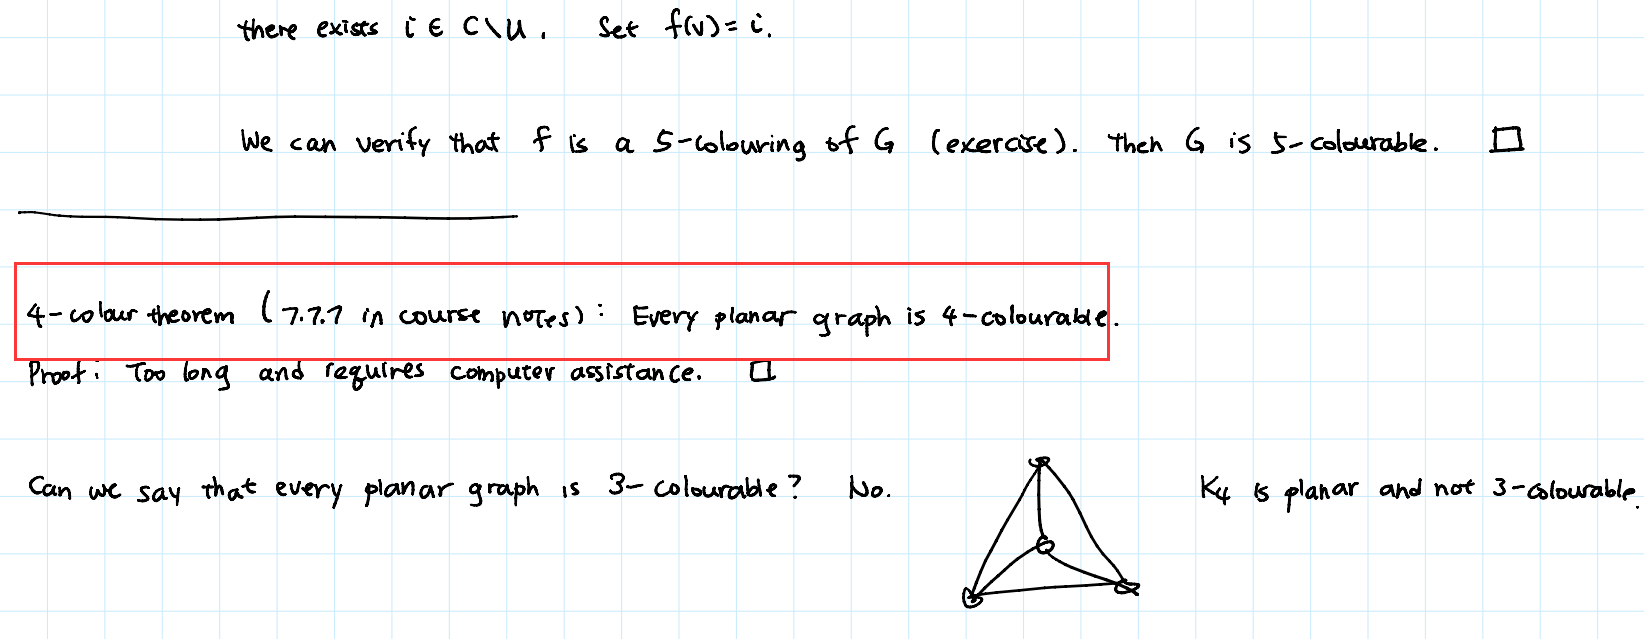 there exists i ∈ C\U. Set f(v)= i.
We can verify that f is a 5-colouring of G (exercise). Then G is 5-colourable. □
4-colour theorem (7.7.7 in course notes): Every planar graph is 4-colourable.
Proof: Too long and requires computer assistance. □
Can we say that every planar graph is 3-colourable? No. K4 is planar and not 3-colourable.